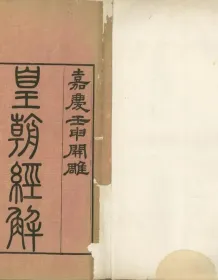 嘉慶壬申開雕
皇朝經解